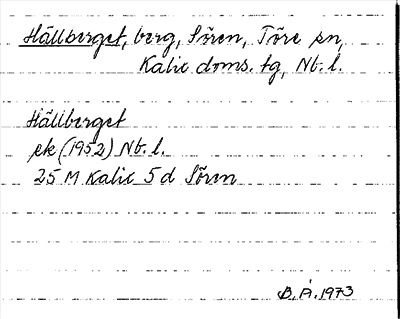 Hällberget, berg, Sören, Töre sn,
Kalix doms. tg, Nb. l.
Hällberget
ek (1952) Nb. l.
25 M Kalix 5 d Sören
B. Å. 1973